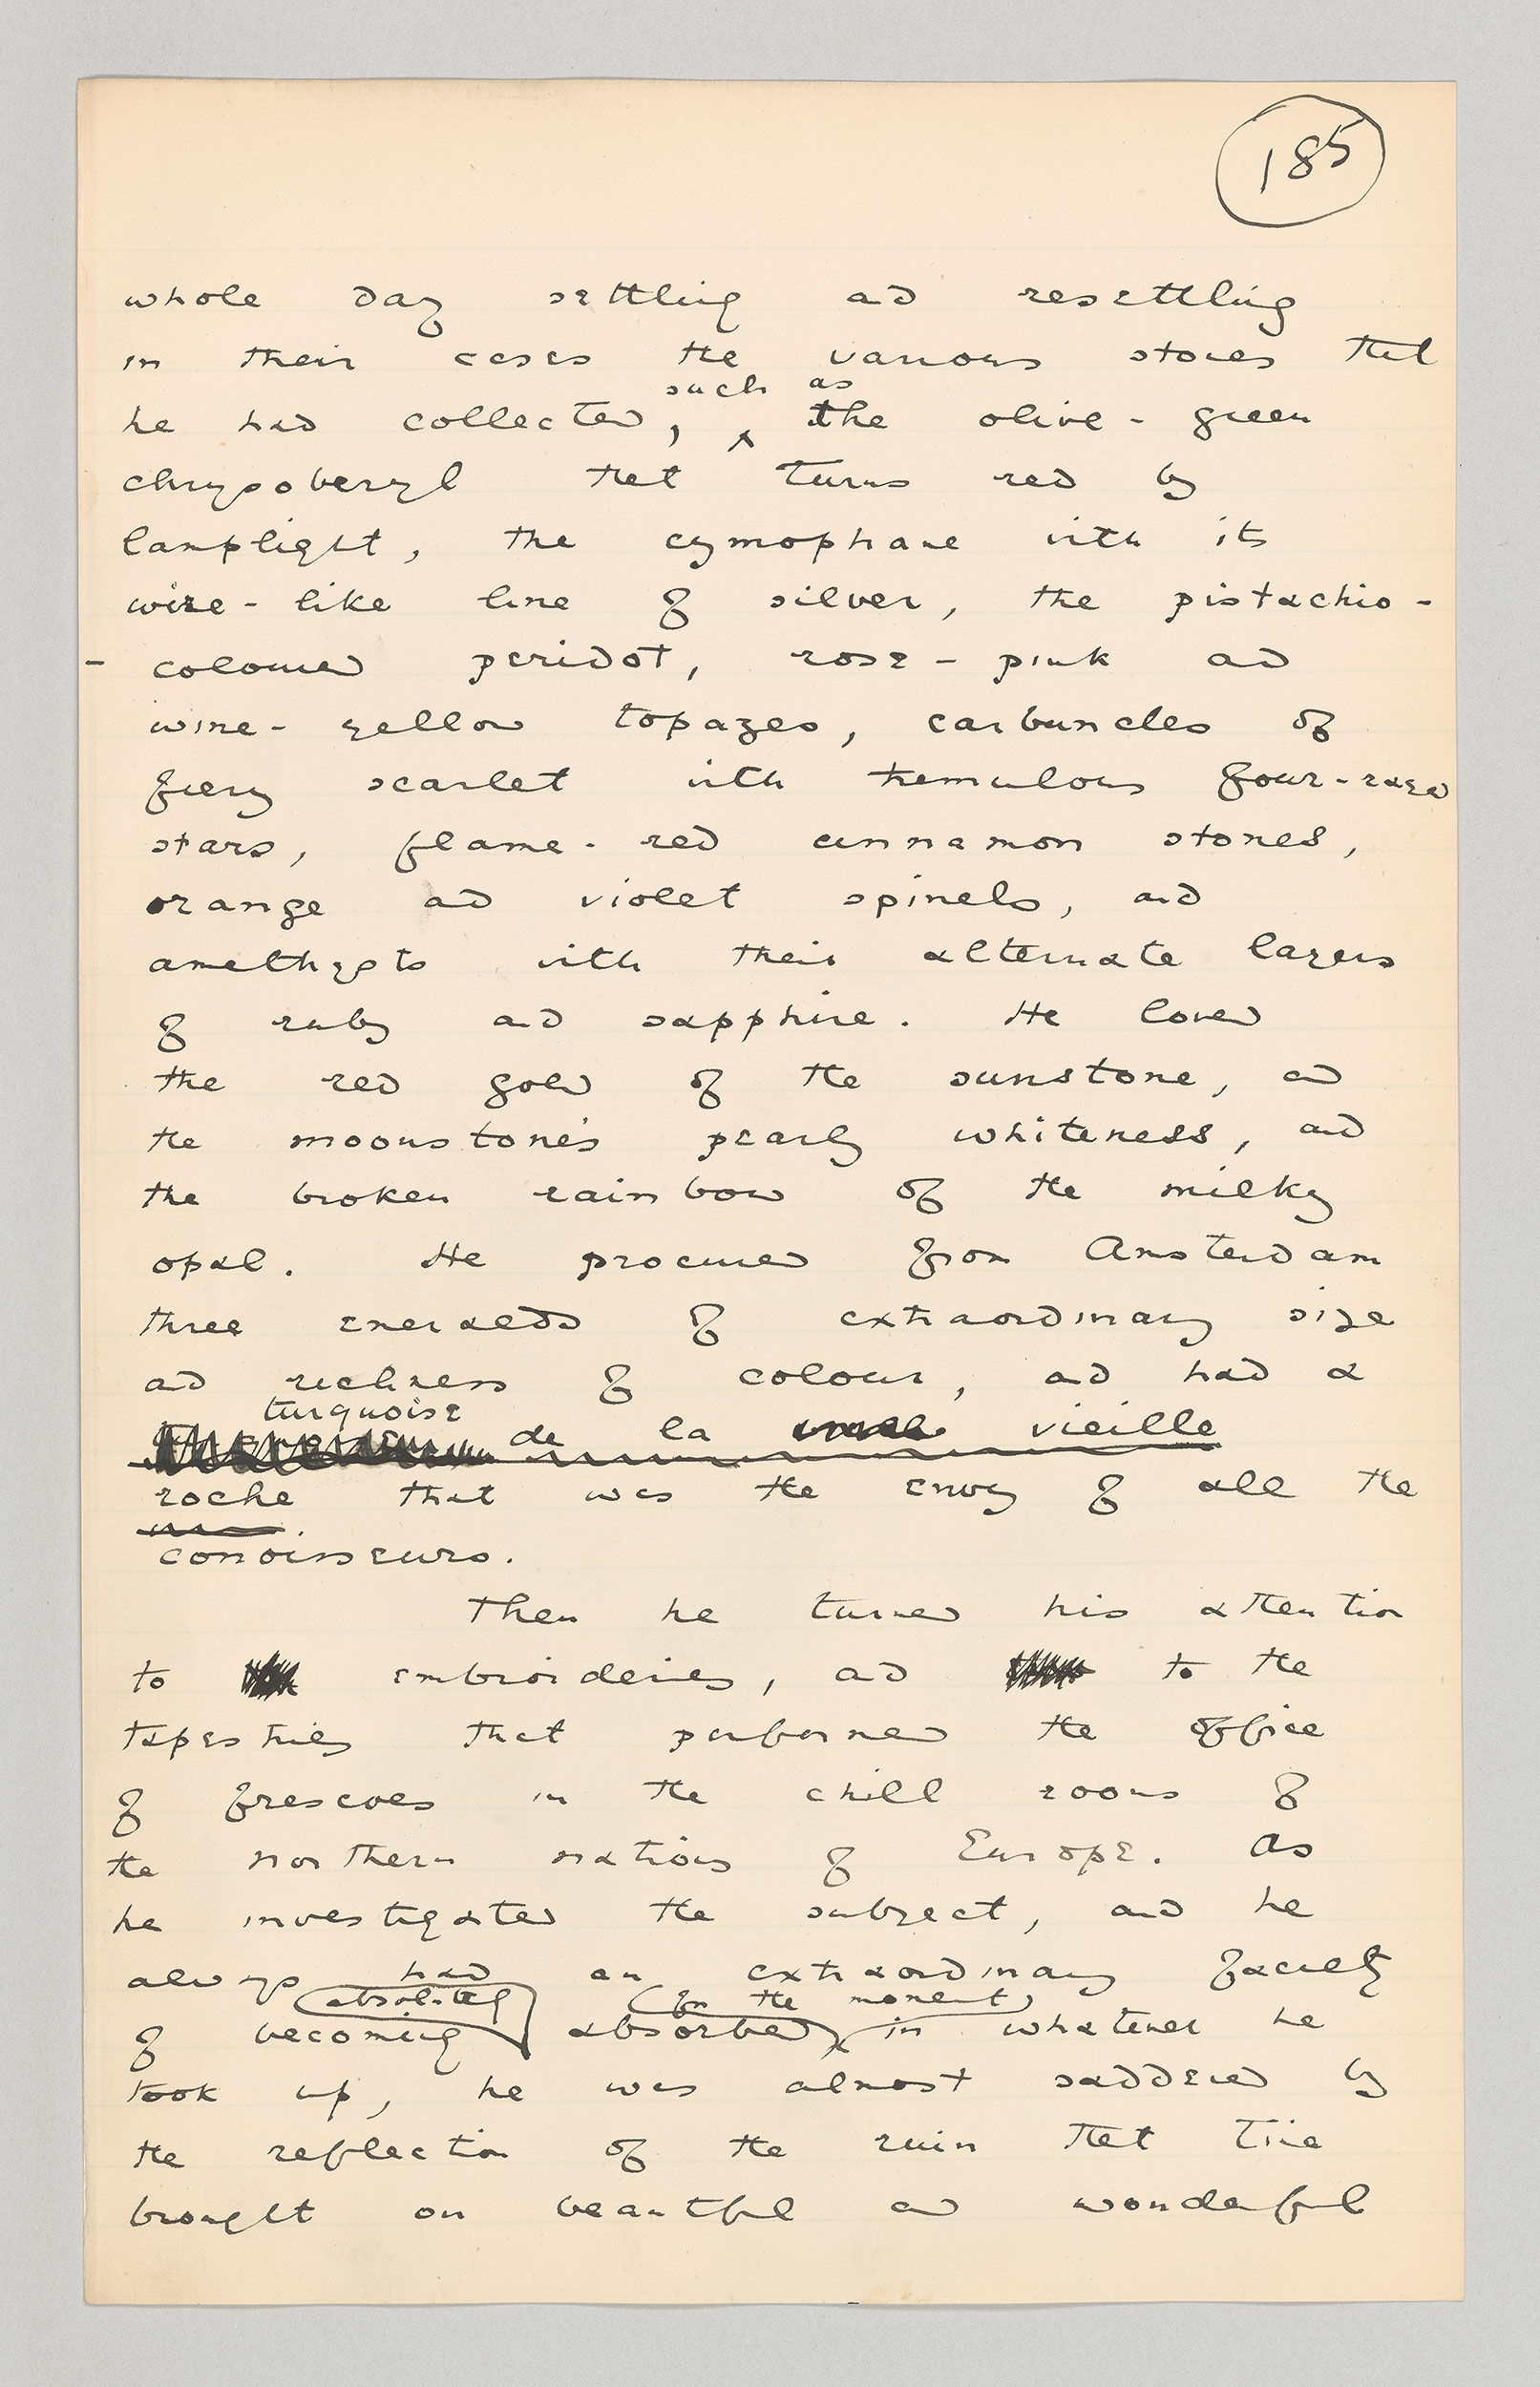 185
whole day settling and resettling
in their cases the various stones that
such as
he had collected, ^ the olive-green
chrysoberyl that turns red by
lamplight, the cymophane with its
wire-like line of silver, the pistachio-
- coloured peridot, rose-pink and
wine-yellow topazes, carbuncles of
fiery scarlet with tremulous four-rayed
stars, flame-red cinnamon stones,
orange and violet spinels, and
amethysts with their alternate layers
of ruby and sapphire. He loved
the red gold of the sunstone, and
the moonstone's pearly whiteness, and
the broken rainbow of the milky
opal. He procured from Amsterdam
three emeralds of extraordinary size
and richness of colour, and had a
turquoise
de la vieille
roche that was the envy of all the
conoisseurs.
Then he turned his attention
to embroideries, and to the
tapestries that performed the office
of frescoes in the chill rooms of
the northern nations of Europe. As
he investigated the subject, and he
always had an extraordinary faculty
absolutely for the moment
of becoming absorbed in whatever he
took up, he was almost saddened by
the reflection of the ruin that Time
brought on beautiful and wonderful